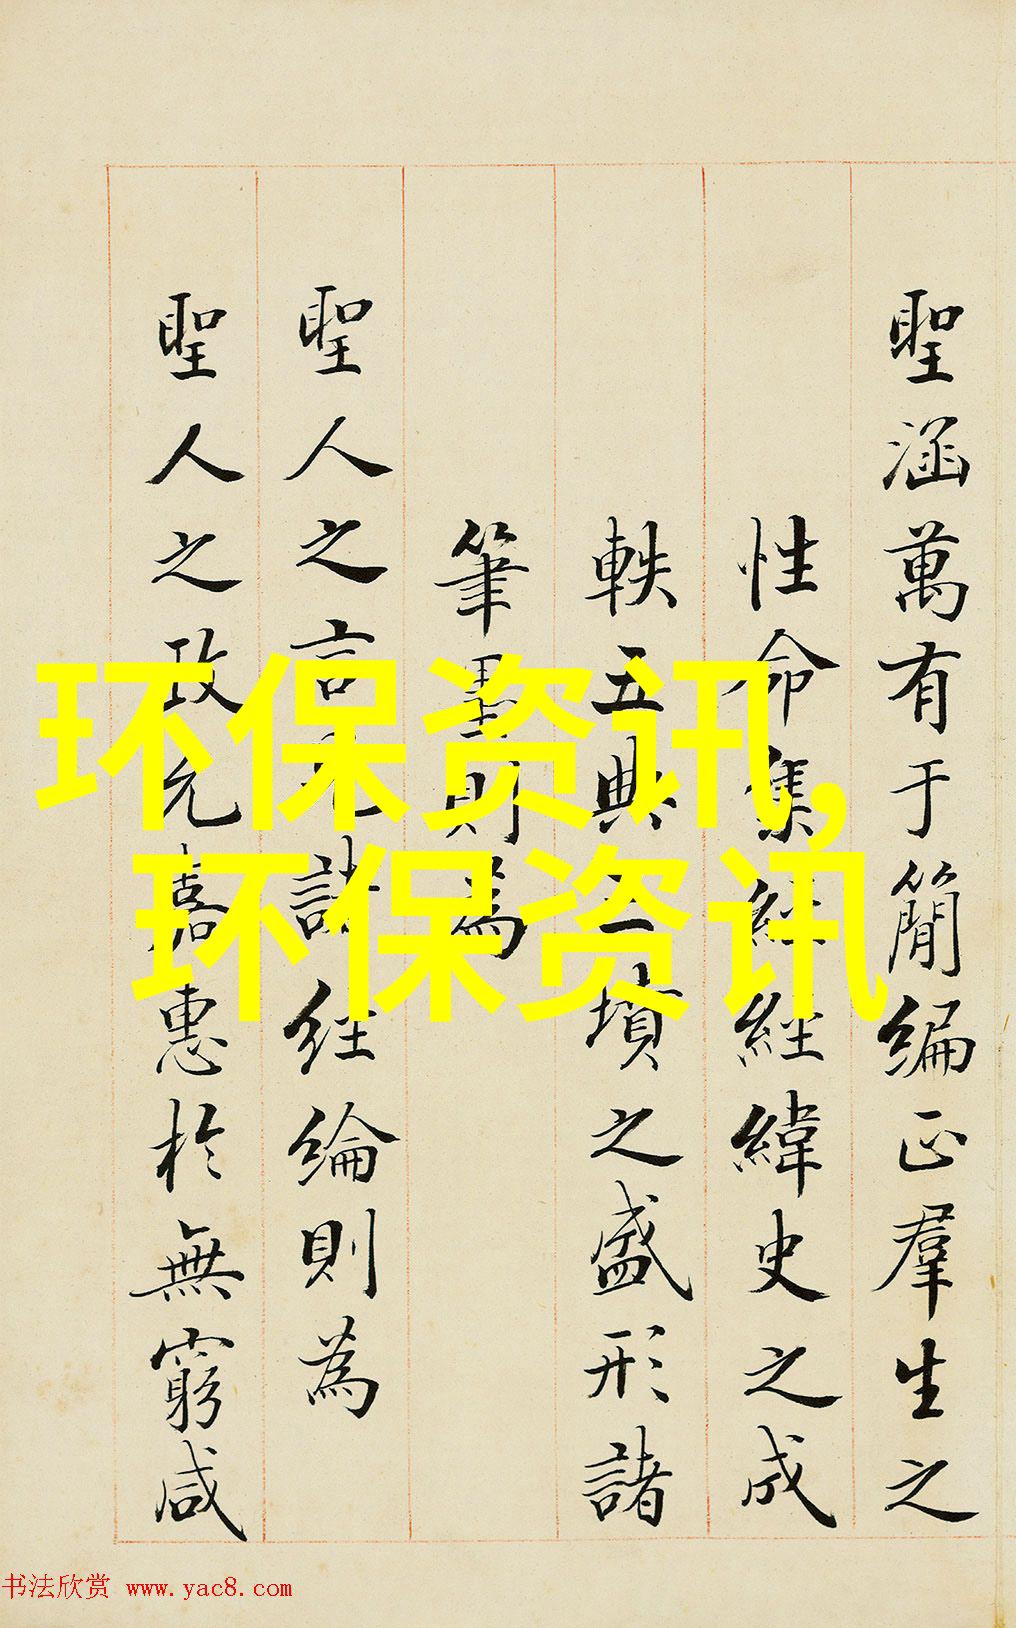 聖涵萬有于簡編正羣生之
性命集經經緯史之成
軼五典三墳之盛形諸
筆墨則為
聖人之言諸經綸則為
聖人之政允嘉惠於無窮咸
环保资讯,
环保资讯
书法欣赏 www.yac8.com